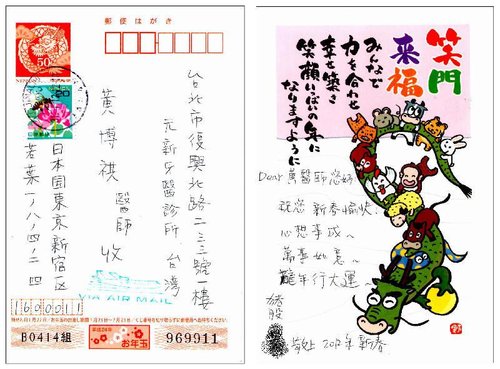 郵便はがき
50
20
台北市復興北路二三三號一樓
元新牙醫診所 台灣
黃博祺 醫師 收
日本国東京新宿区
若葉一ノ八ノ四ノ二四
1600011
VIA AIR MAIL
B0414組
平成24年
お年玉
969911
笑門
来福
みんなで
力を合わせ
幸せ築き
笑顔いっぱいの年に
なりますように
Dear 黃醫師您好
祝您 新春愉快!
心想事成、
萬事如意、
龍年行大運
敬上 2012年 新春